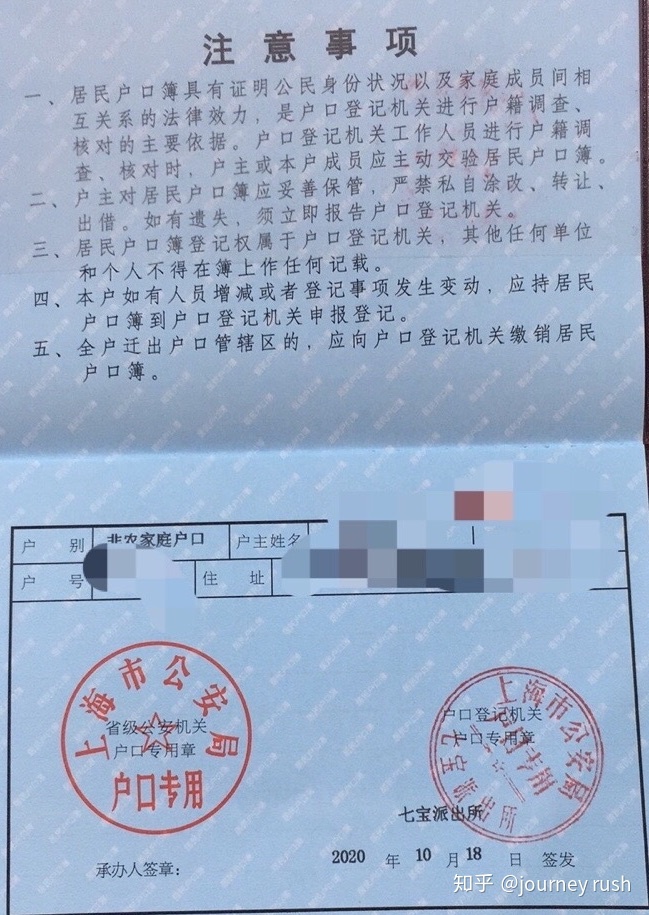 注意事项
一、居民户口簿具有证明公民身份状况以及家庭成员间相
互关系的法律效力，是户口登记机关进行户籍调查、
核对的主要依据。户口登记机关工作人员进行户籍调
查、核对时，户主或本户成员应主动交验居民户口簿。
二、户主对居民户口簿应妥善保管，严禁私自涂改、转让、
出借。如有遗失，须立即报告户口登记机关。
三、居民户口簿登记权属于户口登记机关，其他任何单位
和个人不得在簿上作任何记载。
四、本户如有人员增减或者登记事项发生变动，应持居民
户口簿到户口登记机关申报登记。
五、全户迁出户口管辖区的，应向户口登记机关缴销居民
户口簿。
户 别 非农家庭户口 户主姓名
户 号 住 址
上海市公安局
省级公安机关
户口专用章
户口专用
上海市公安局
户口登记机关
户口专用章
七宝派出所
七宝派出所
2020 年 10 月 18 日 签发
承办人签章：
知乎 @journey rush